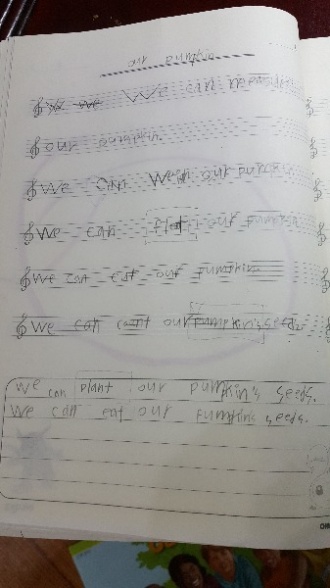 our
We can
our pumpkin
We can Weigh our pumpkin
We can float our pumpkin
We eat est our Pumpkins
We can count our Pumpkin's seeds
We can plant our pumpkin's seeds.
We can eat our Pumpkins seeds.